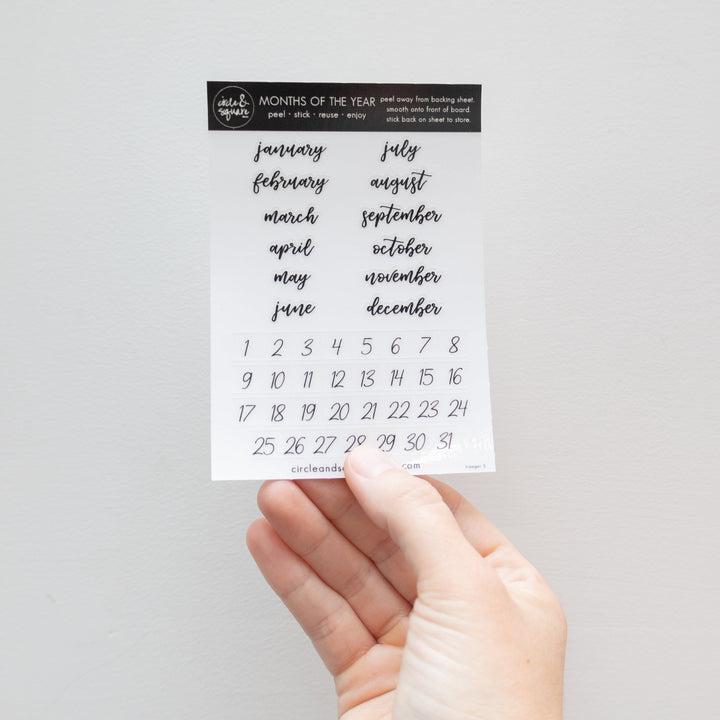 circle &
square
MONTHS OF THE YEAR
peel · stick · reuse · enjoy
peel away from backing sheet.
smooth onto front of board.
stick back on sheet to store.
january
february
march
april
may
june
july
august
september
october
november
december
1 2 3 4 5 6 7 8
9 10 11 12 13 14 15 16
17 18 19 20 21 22 23 24
25 26 27 28 29 30 31